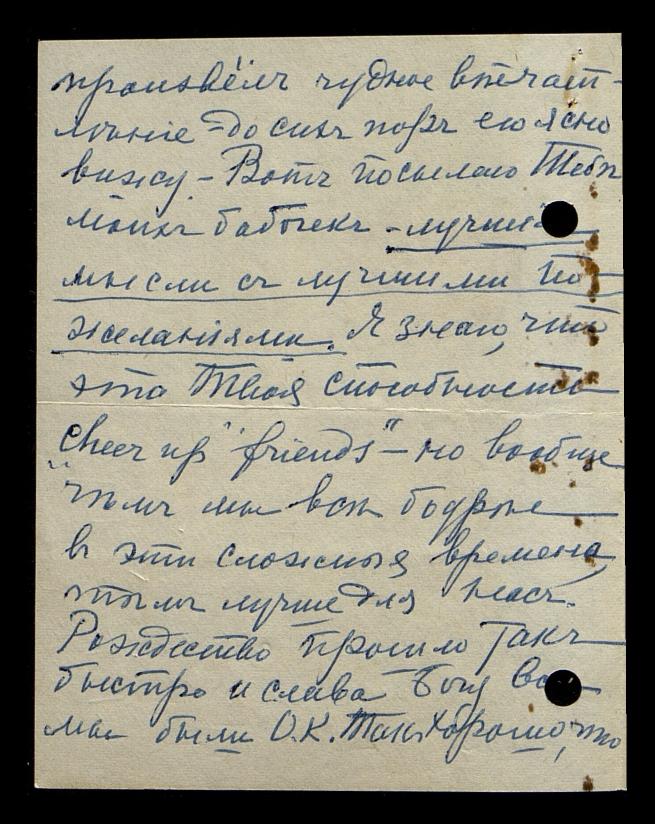 произвёлъ чудное впечат-
лѣніе - до сихъ поръ его ясно
вижу - Вотъ посылаю Тебѣ
моихъ бабочекъ - лучшія
мысли съ лучшими по-
желаніями. Я знаю, что
это Твоя способность
"cheer up" friends" - но вообще
чѣмъ мы всѣ бодрѣе
въ эти сложныя времена,
тѣмъ лучше для насъ.
Рождество прошло такъ
быстро и слава Богу все
мы были О.К. Такъ хорошо, что